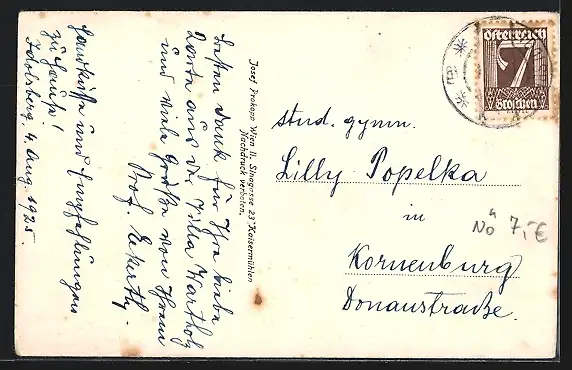 Besten Dank für Ihre liebe
Karte aus der Villa Wartholz
und viele Grüße von Ihrem
Prof. Ekerth.
Handküsse und Empfehlungen
zu Hause!
Idolsberg, 4. Aug. 1925.
Josef Prokopp Wien II. Sinagasse 23 Kaisermühlen
Nachdruck verboten.
Österreich
7
Groschen
stud. gymn.
Lilly Popelka
in
Korneuburg
Donaustraße.
NÖ 7,-€